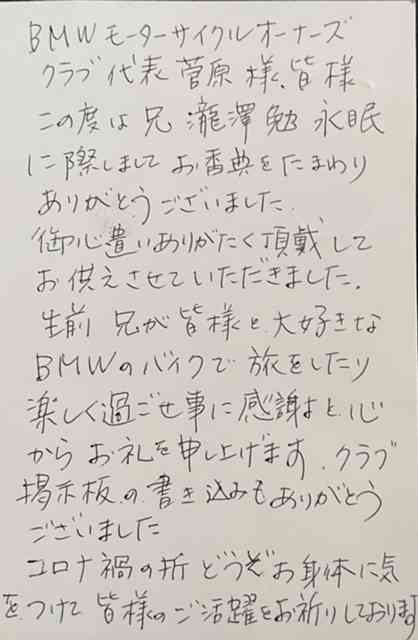 BMWモーターサイクルオーナーズ
クラブ代表菅原様、皆様
この度は兄 瀧澤勉 永眠
に際しまして お香典をたまわり
ありがとうございました.
御心遣いありがたく頂戴して
お供えさせていただきました.
生前 兄が皆様と大好きな
BMWのバイクで旅をしたり
楽しく過ごせ事に感謝よと心
からお礼を申し上げます. クラブ
掲示板の書き込みもありがとう
ございました
コロナ禍の折どうぞお身体に気
をつけて皆様のご活躍をお祈りしております